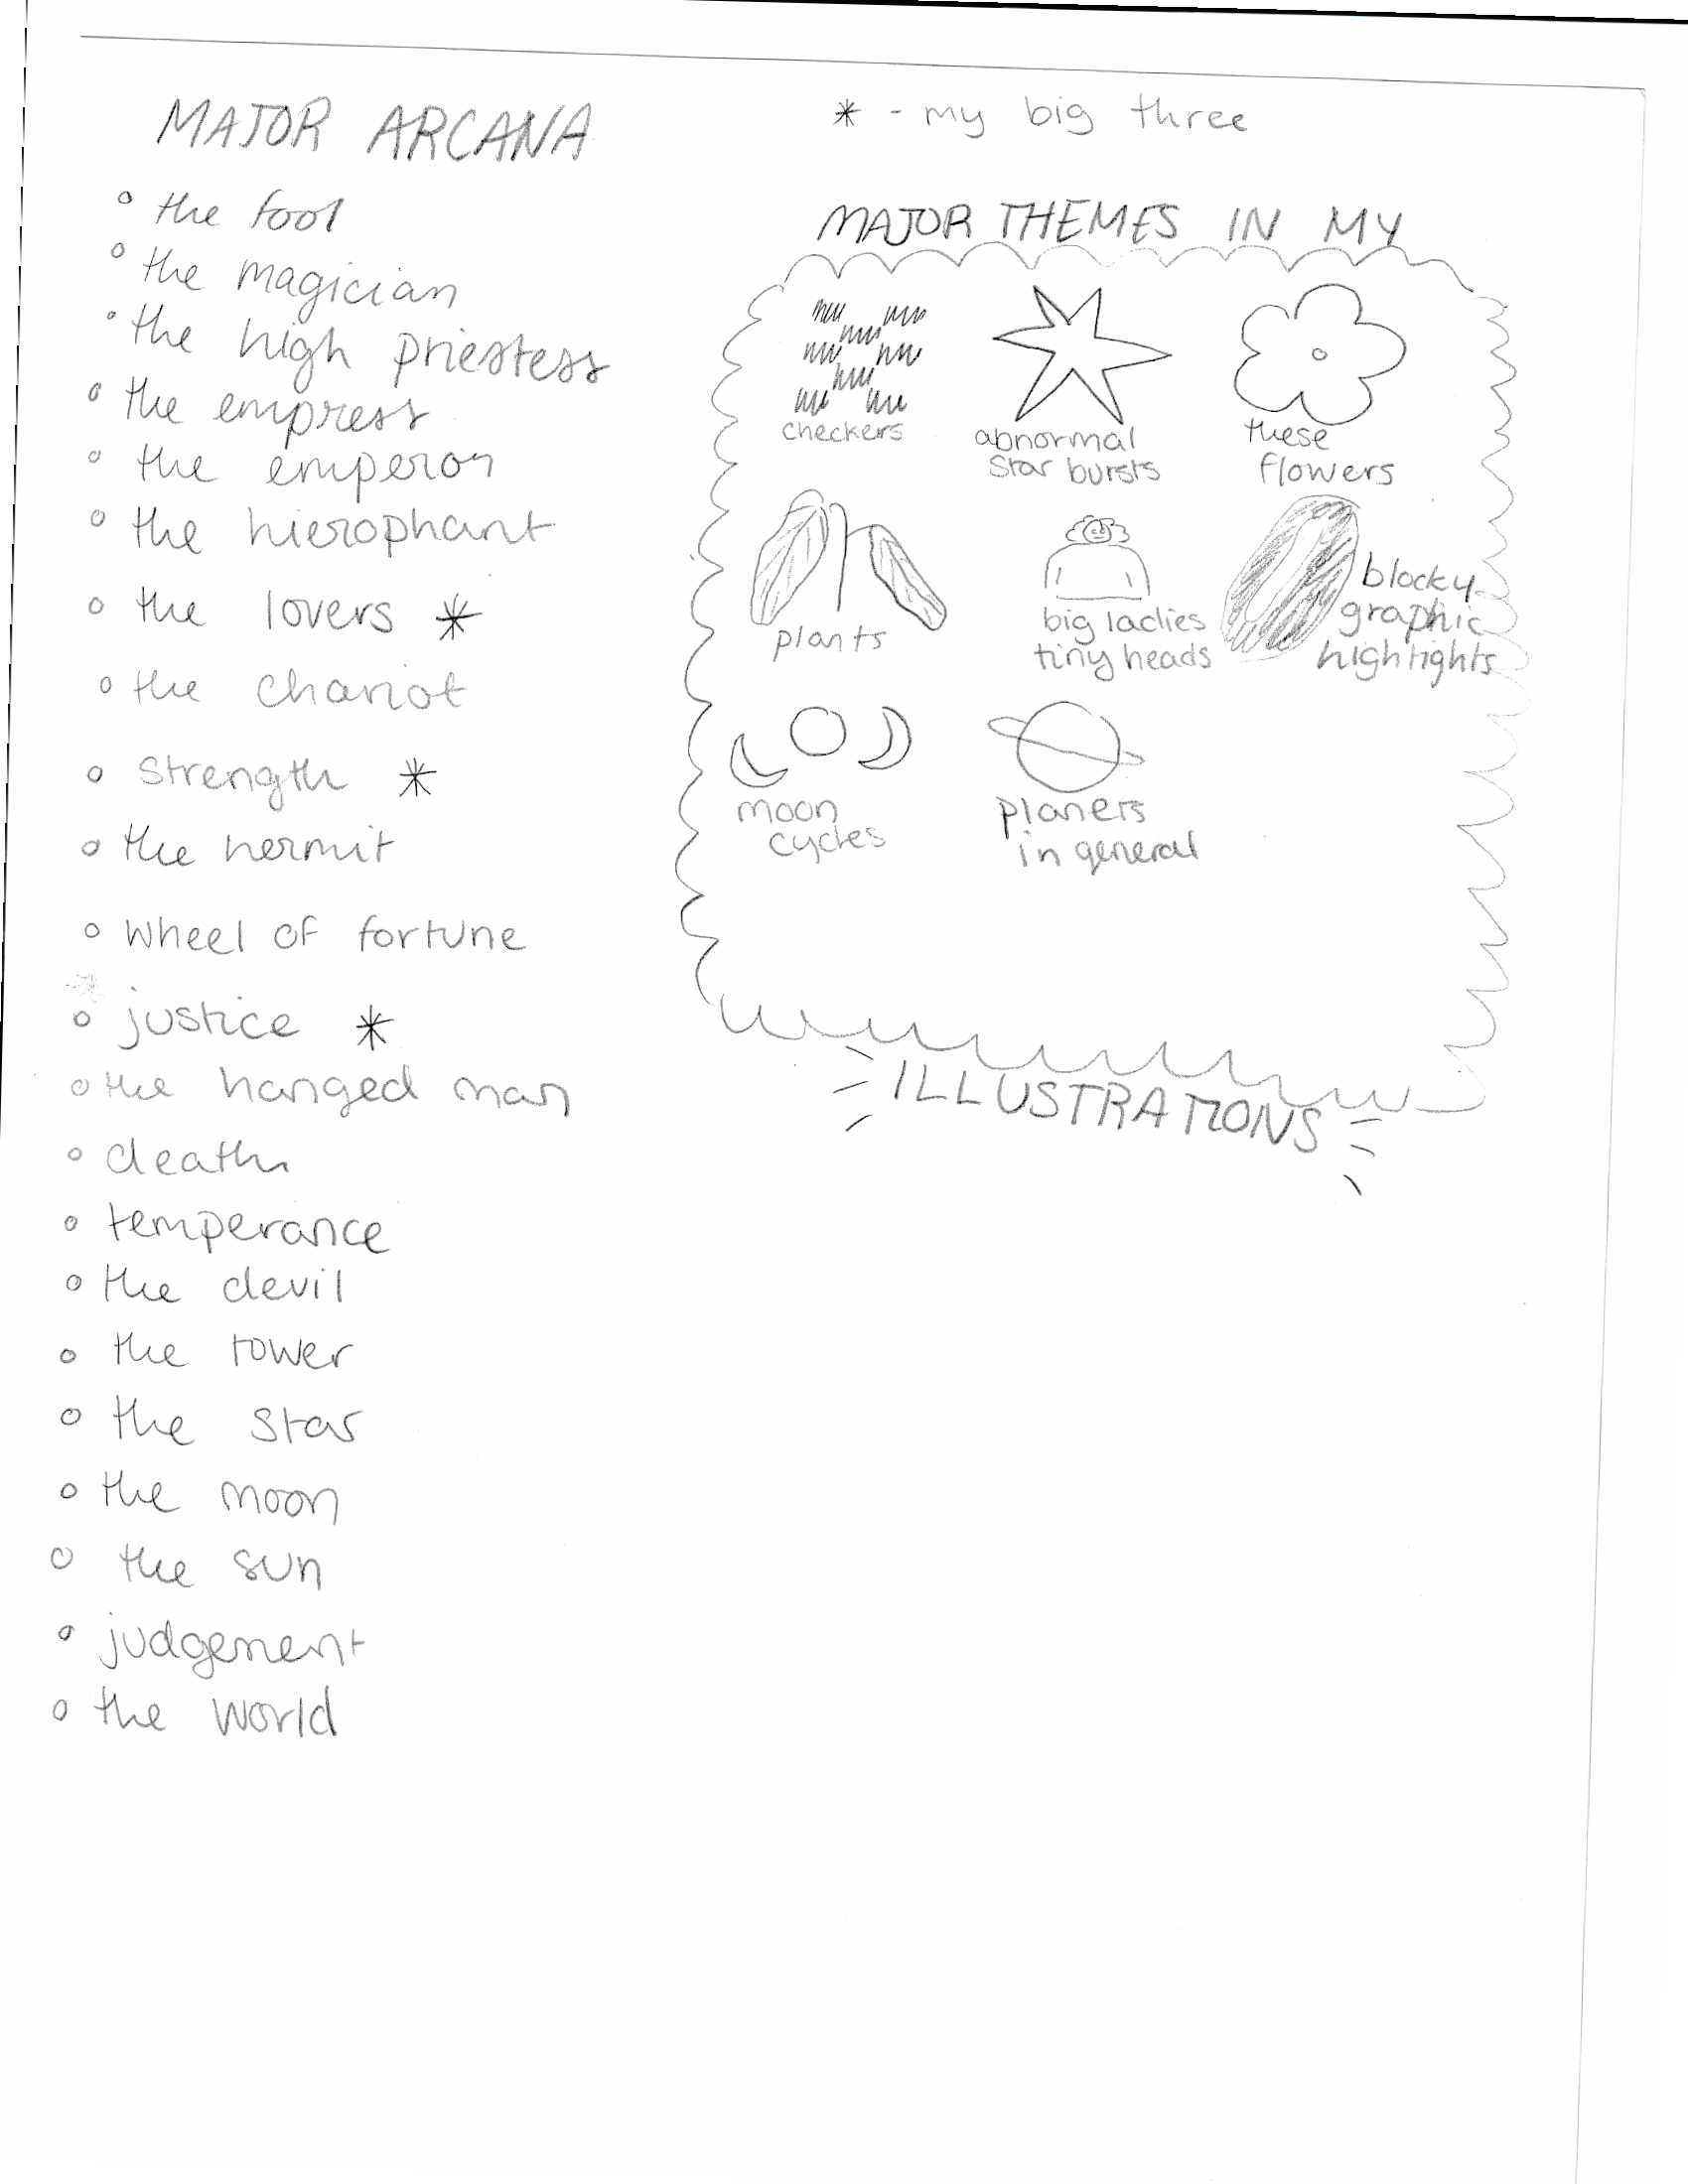 MAJOR ARCANA
the fool
the magician
the high priestess
the empress
the emperor
the hierophant
the lovers *
the chariot
strength *
the hermit
wheel of fortune
justice *
the hanged man
death
temperance
the devil
the tower
the star
the moon
the sun
judgement
the world
* - my big three
MAJOR THEMES IN MY
checkers
abnormal
star bursts
these
flowers
plants
big ladies
tiny heads
blocky
graphic
highlights
moon
cycles
planets
in general
ILLUSTRATIONS